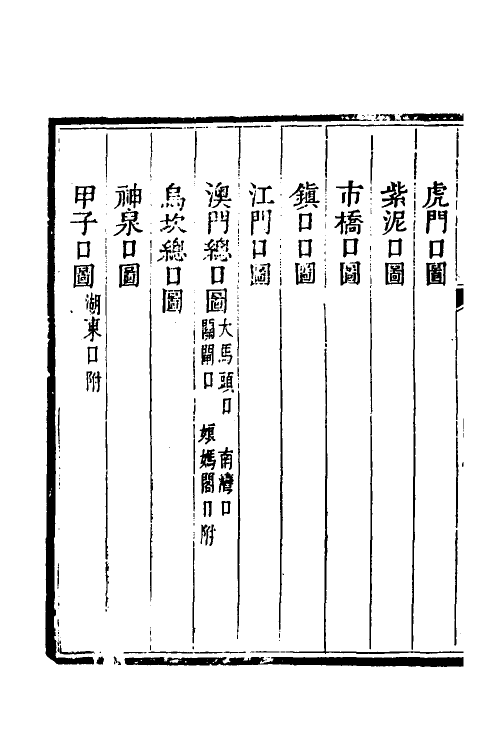 虎門口圖
紫泥口圖
市橋口圖
鎮口口圖
江門口圖
澳門總口圖
大馬頭口 南灣口
關閘口 娘媽閣口附
烏坎總口圖
神泉口圖
甲子口圖湖東口附